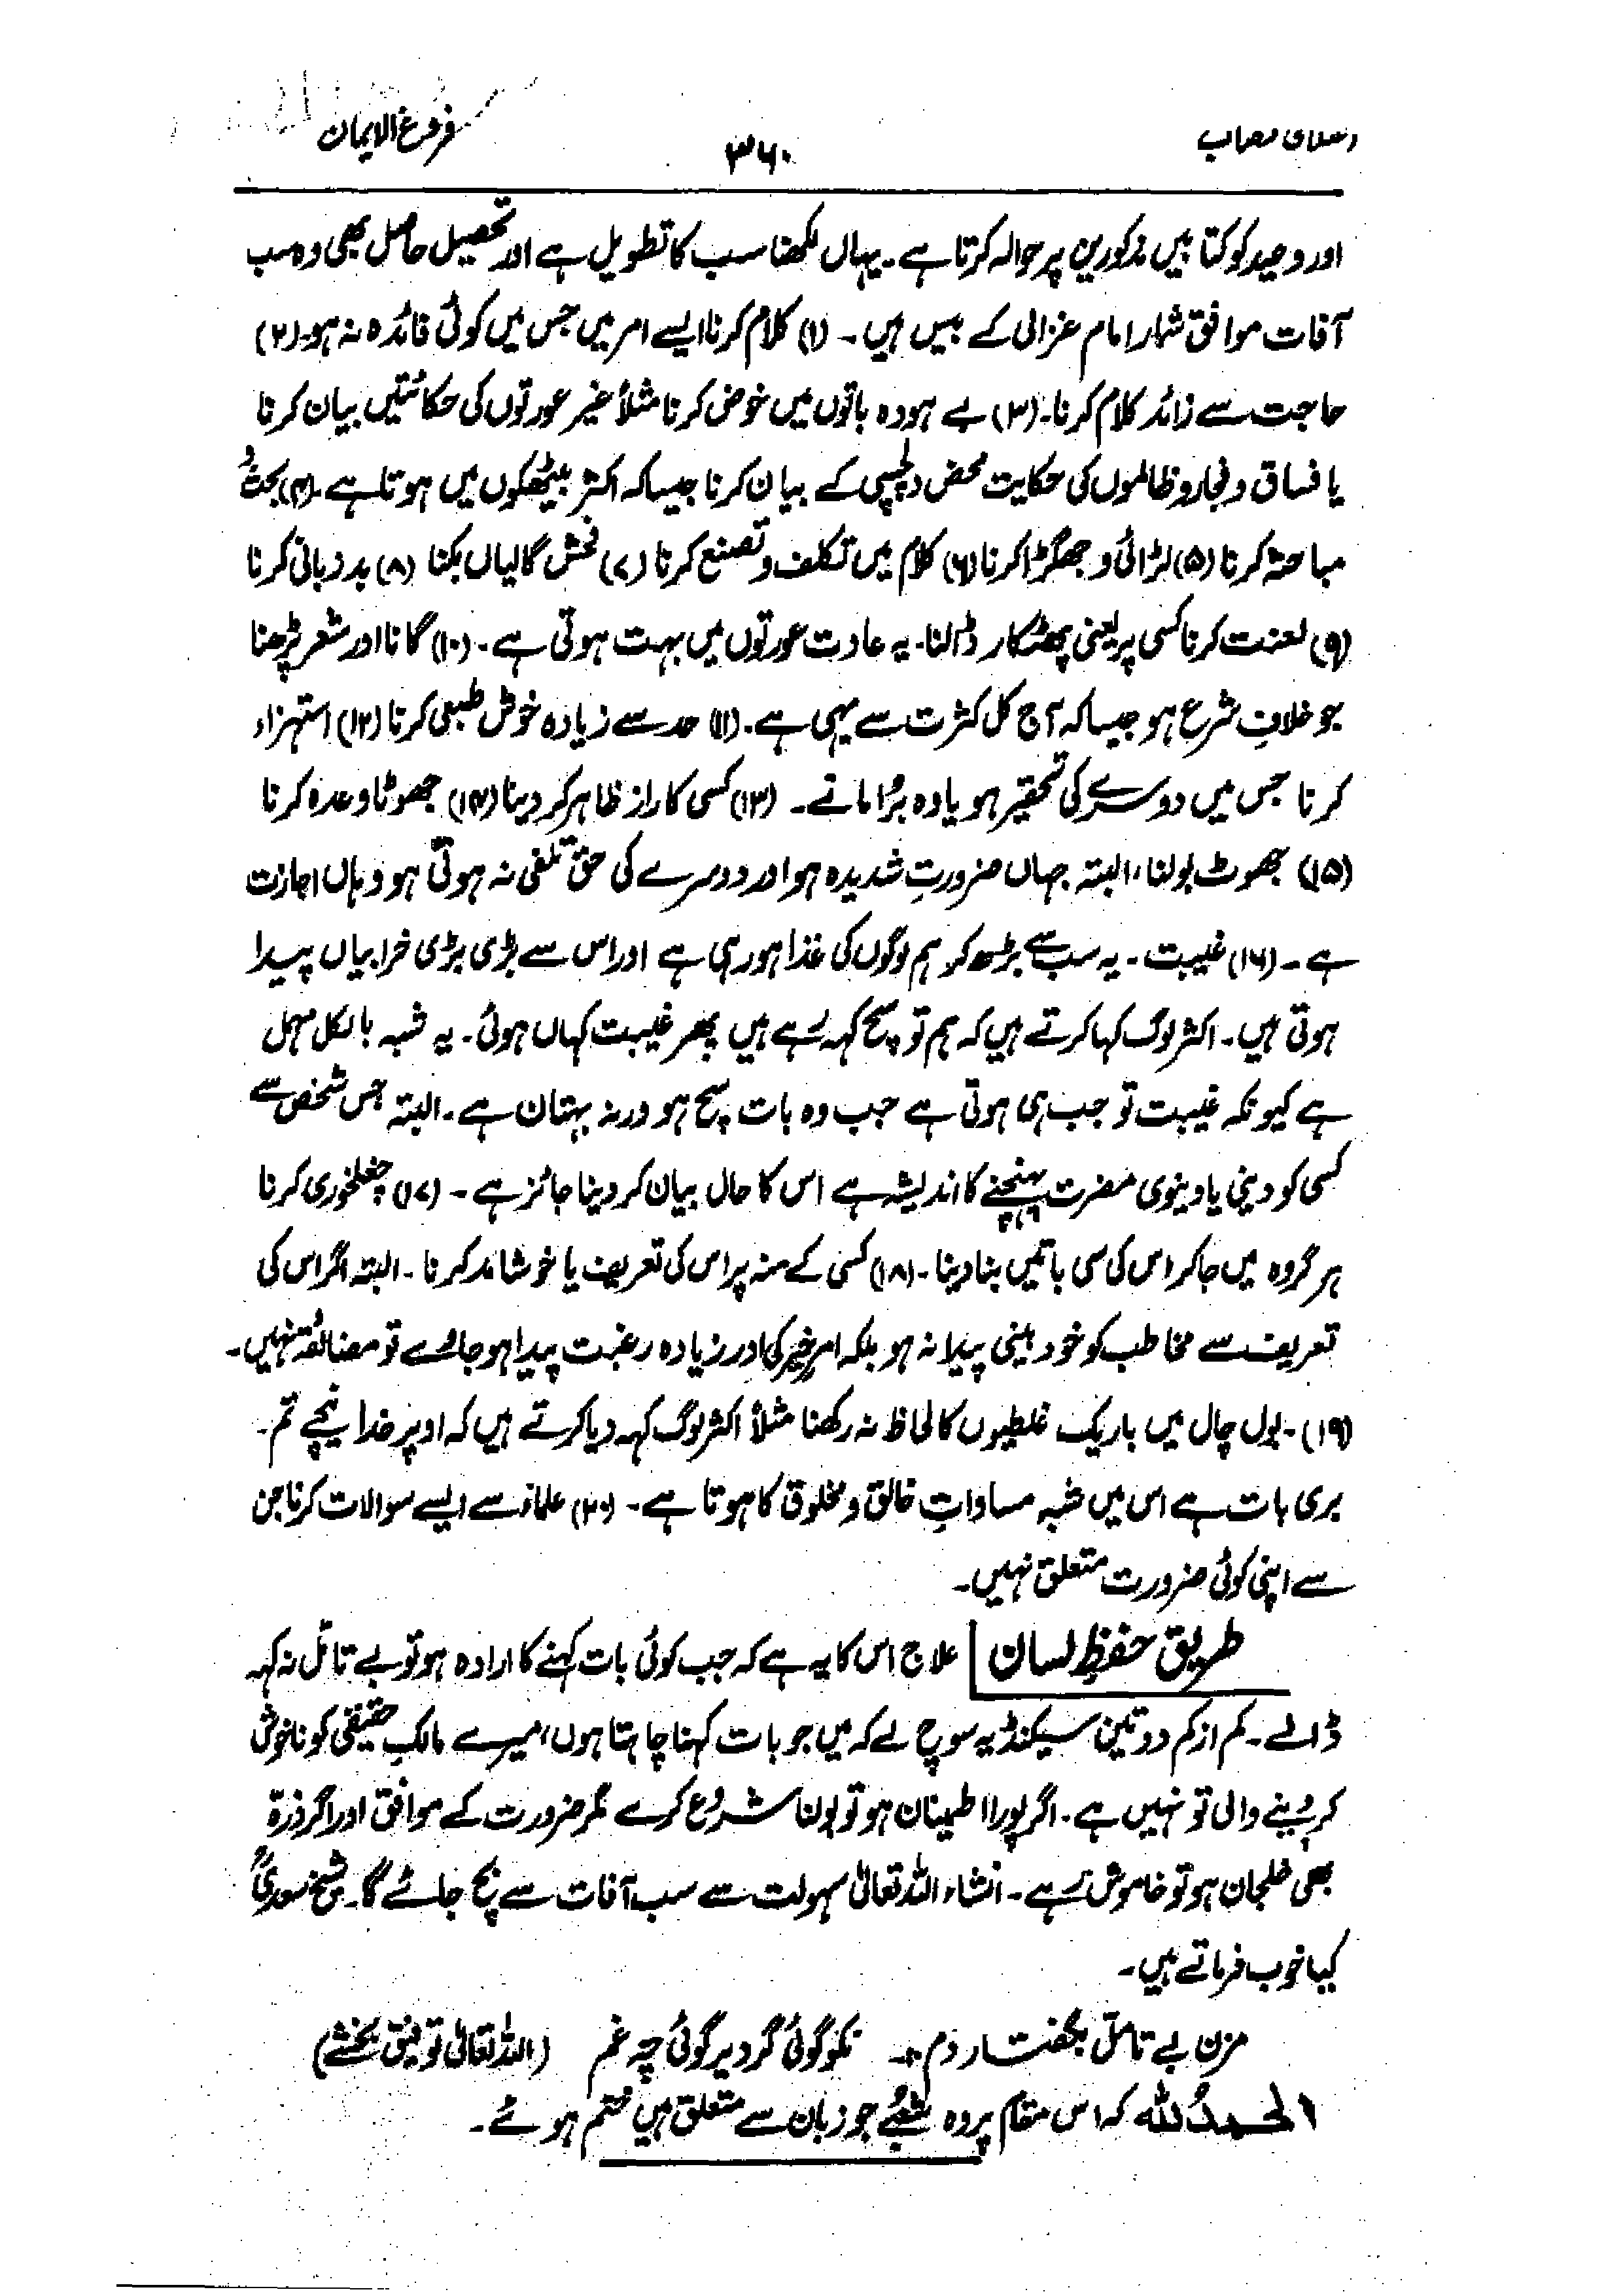 اصلاحی نصاب ۳۶۰ فروع الایمان
اور وعید کو کتابیں مذکورین پر حوالہ کرتا ہے۔ یہاں لکھنا سب کا تطویل ہے اور تحصیل حاصل بھی وہ سب
آفات موافق شمار امام غزالی کے بیس ہیں۔ (۱) کلام کرنا ایسے امر میں جس میں کوئی فائدہ نہ ہو۔ (۲)
حاجت سے زائد کلام کرنا۔ (۳) بے ہودہ باتوں میں خوض کرنا مثلاً غیر عورتوں کی حکائتیں بیان کرنا
یا فساق و فجار و ظالموں کی حکایت محض دلچسپی کے بیان کرنا جیسا کہ اکثر بیٹھکوں میں ہوتا ہے۔ (۴) بحث و
مباحثہ کرنا (۵) لڑائی و جھگڑا کرنا (۶) کلام میں تکلف و تصنع کرنا (۷) فحش گالیاں بکنا (۸) بدزبانی کرنا
(۹) لعنت کرنا کسی پر یعنی پھٹکار ڈالنا۔ یہ عادت عورتوں میں بہت ہوتی ہے۔ (۱۰) گانا اور شعر پڑھنا
جو خلافِ شرع ہو جیسا کہ آج کل کثرت سے یہی ہے۔ (۱۱) حد سے زیادہ خوش طبعی کرنا (۱۲) استہزاء
کرنا جس میں دوسرے کی تحقیر ہو یا وہ بُرا مانے۔ (۱۳) کسی کا راز ظاہر کر دینا (۱۴) جھوٹا وعدہ کرنا
(۱۵) جھوٹ بولنا، البتہ جہاں ضرورتِ شدیدہ ہو اور دوسرے کی حق تلفی نہ ہوتی ہو وہاں اجازت
ہے۔ (۱۶) غیبت۔ یہ سب سے بڑھ کر ہم لوگوں کی غذا ہو رہی ہے اور اس سے بڑی بڑی خرابیاں پیدا
ہوتی ہیں۔ اکثر لوگ کہا کرتے ہیں کہ ہم تو سچ کہہ رہے ہیں پھر غیبت کہاں ہوئی۔ یہ شبہ بالکل مہمل
ہے کیونکہ غیبت تو جب ہی ہوتی ہے جب وہ بات سچ ہو ورنہ بہتان ہے۔ البتہ جس شخص سے
کسی کو دینی یا دنیوی مضرت پہنچنے کا اندیشہ ہے اس کا حال بیان کر دینا جائز ہے۔ (۱۷) چغلخوری کرنا
ہر گروہ میں جا کر اس کی سی باتیں بنا دینا۔ (۱۸) کسی کے منہ پر اس کی تعریف یا خوشامد کرنا۔ البتہ اگر اس کی
تعریف سے مخاطب کو خود بینی پیدا نہ ہو بلکہ امرِ خیر کی اور زیادہ رغبت پیدا ہو جاوے تو مضائقہ نہیں۔
(۱۹)۔ بول چال میں باریک غلطیوں کا لحاظ نہ رکھنا مثلاً اکثر لوگ کہہ دیا کرتے ہیں کہ اوپر خدا نیچے تم۔
بری بات ہے اس میں شبہ مساواتِ خالق و مخلوق کا ہوتا ہے۔ (۲۰) علماء سے ایسے سوالات کرنا جن
سے اپنی کوئی ضرورت متعلق نہیں۔
طریق حفظِ لسان علاج اس کا یہ ہے کہ جب کوئی بات کہنے کا ارادہ ہو تو بے تامّل نہ کہہ
ڈالے۔ کم از کم دو تین سیکنڈ یہ سوچ لے کہ میں جو بات کہنا چاہتا ہوں، میرے مالکِ حقیقی کو ناخوش
کر دینے والی تو نہیں ہے۔ اگر پورا اطمینان ہو تو بولنا شروع کرے مگر ضرورت کے موافق اور اگر ذرّہ
بھی خلجان ہو تو خاموش رہے۔ انشاء اللہ تعالیٰ سہولت سے سب آفات سے بچ جائے گا۔ شیخ سعدیؒ
کیا خوب فرماتے ہیں۔
مزن بے تامل بگفتار دم ۔ نکو گوئی گر دیر گوئی چہ غم (اللہ تعالیٰ توفیق بخشے)
الحمدُ للہ کہ اس مقام پر وہ شعبے جو زبان سے متعلق ہیں ختم ہوئے۔